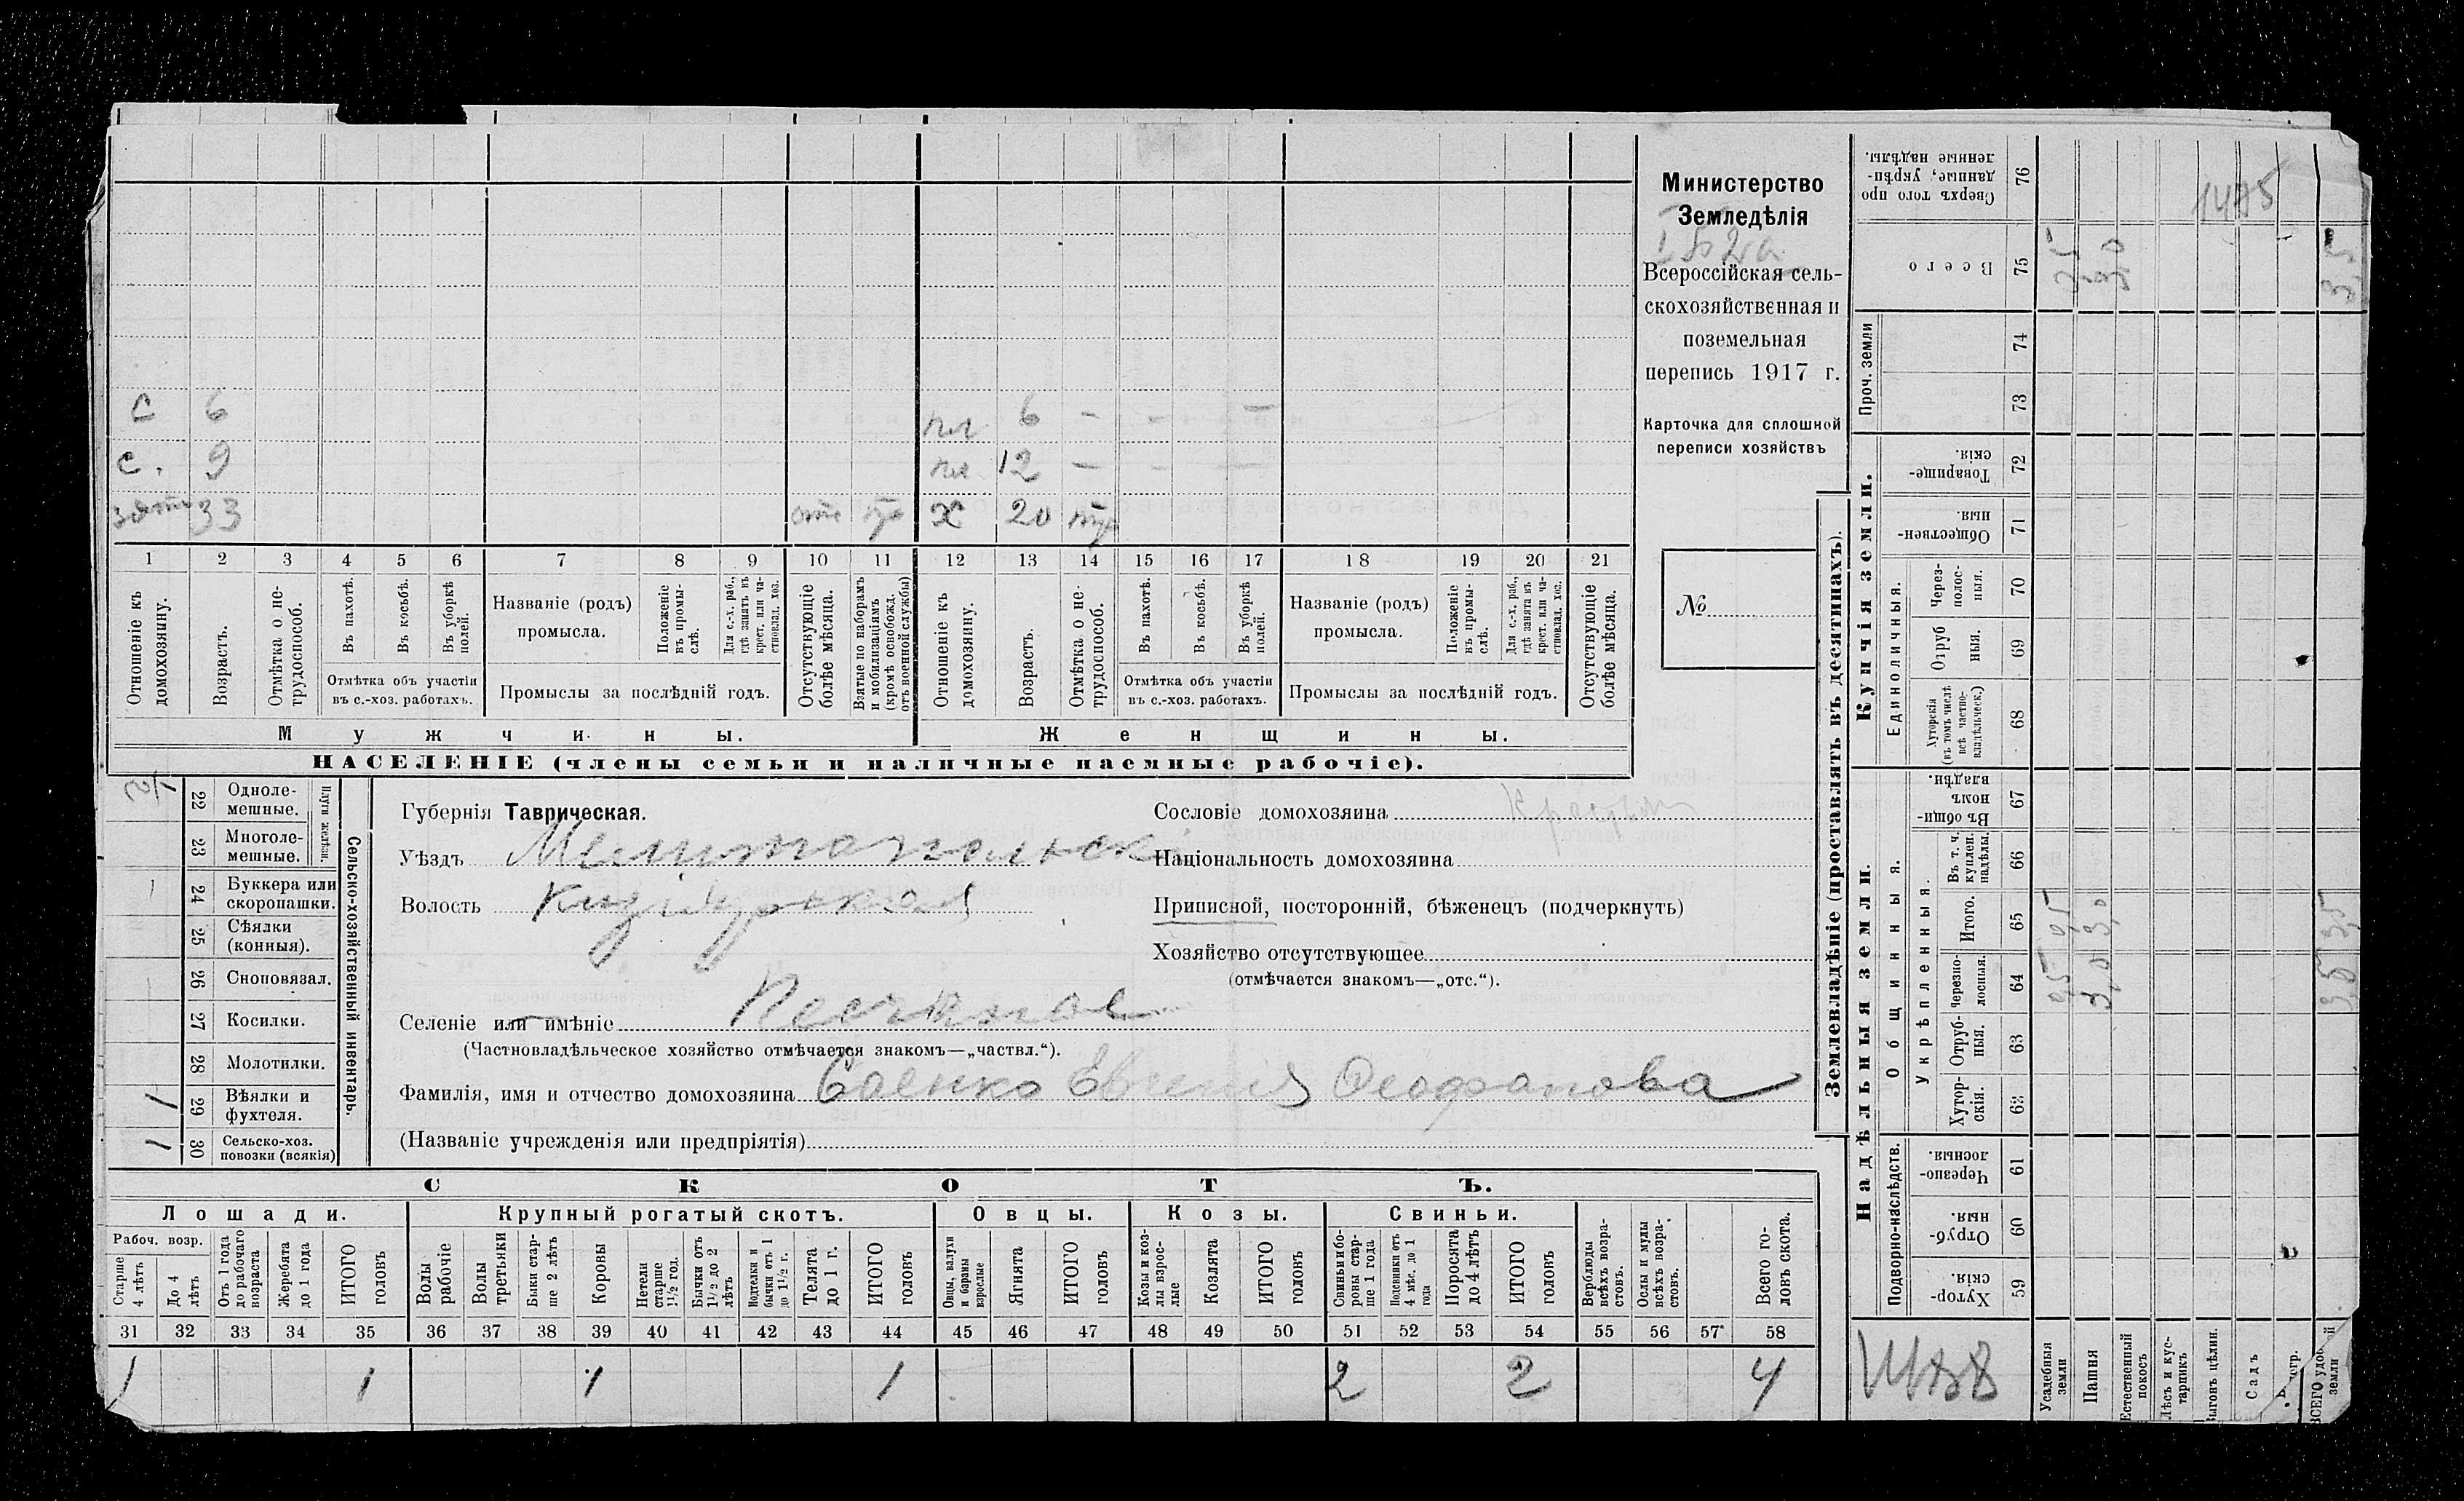 С 6 пл 6 - - -
С. 9 пл 12 - - -
зять 33 отс Х 20
1 2 3 4 5 6 7 8 9 10 11 12 13 14 15 16 17 18 19 20 21
Отношеніе къ домохозяину.
Возрастъ.
Отмѣтка о нетрудоспособ.
Въ пахотѣ.
Въ косьбѣ.
Въ уборкѣ полей.
Отмѣтка объ участіи
въ с.-хоз. работахъ.
Названіе (родъ)
промысла.
Положеніе въ промыслѣ.
Для с.-х. раб., гдѣ занятъ въ крест. или частновлад. хоз.
Промыслы за послѣдній годъ.
Отсутствующіе болѣе мѣсяца.
Взятые по наборамъ и мобилизаціямъ (кромѣ освобожд. отъ военной службы)
Отношеніе къ домохозяину.
Возрастъ.
Отмѣтка о нетрудоспособ.
Въ пахотѣ.
Въ косьбѣ.
Въ уборкѣ полей.
Отмѣтка объ участіи
въ с.-хоз. работахъ.
Названіе (родъ)
промысла.
Положеніе въ промыслѣ.
Для с.-х. раб., гдѣ занята въ крест. или частновлад. хоз.
Промыслы за послѣдній годъ.
Отсутствующіе болѣе мѣсяца.
Мужчины.
Женщины.
НАСЕЛЕНІЕ (члены семьи и наличные наемные рабочіе).
Министерство
Земледѣлія
Всероссійская сель-
скохозяйственная и
поземельная
перепись 1917 г.
Карточка для сплошной
переписи хозяйствъ
№
Сельско-хозяйственный инвентарь.
Плуги желѣзн.
22 Одноле-
мешные.
23 Многоле-
мешные.
24 Буккера или
скоропашки.
25 Сѣялки
(конныя).
26 Сноповязал.
27 Косилки.
28 Молотилки.
1 29 Вѣялки и
фухтеля.
1 30 Сельско-хоз.
повозки (всякія)
Губернія Таврическая.
Уѣздъ Мелитопольскі
Волость
Селеніе или имѣніе
(Частновладѣльческое хозяйство отмѣчается знакомъ—„частвл.“).
Фамилія, имя и отчество домохозяина Саенко Евгенія Феофанова
(Названіе учрежденія или предпріятія)
Сословіе домохозяина
Національность домохозяина
Приписной, посторонній, бѣженецъ (подчеркнуть)
Хозяйство отсутствующее
(отмѣчается знакомъ—„отс.“).
СКОТЪ.
Лошади.
Крупный рогатый скотъ.
Овцы.
Козы.
Свиньи.
Рабоч. возр.
Старше 4 лѣтъ
До 4 лѣтъ
Отъ 1 года до рабочаго возраста
Жеребята до 1 года
ИТОГО головъ
Волы рабочіе
Волы третьяки
Быки старше 2 лѣтъ
Коровы
Нетели старше 1½ год.
Бычки отъ 1½ до 2 лѣтъ
Подтелки и бычки отъ 1 до 1½ г.
Телята до 1 г.
ИТОГО головъ
Овцы, валухи и бараны взрослые
Ягнята
ИТОГО головъ
Козы и козлы взрослые
Козлята
ИТОГО головъ
Свиньи и бороны старше 1 года
Подсвинки отъ 4 мѣс. до 1 года
Поросята до 4 лѣтъ
ИТОГО головъ
Верблюды всѣхъ возрастовъ.
Ослы и мулы всѣхъ возрастовъ.
Всего головъ скота.
31 32 33 34 35 36 37 38 39 40 41 42 43 44 45 46 47 48 49 50 51 52 53 54 55 56 57 58
1 1 1 1 2 2 4
Землевладѣніе (проставлять въ десятинахъ).
Купчія земли.
Надѣльныя земли.
Проч. земли
Единоличныя.
Общинныя.
Укрѣпленныя.
Подворно-наслѣдств.
76 Сверхъ того проданные, укрѣпленные надѣлы.
75 Всего
74
73
72 Товарищескія.
71 Общественныя.
70 Черезполосныя.
69 Отрубныя.
68 Хуторскія (въ томъ числѣ всѣ частновладѣльческ.)
67 Въ общинномъ владѣн.
66 Въ т. ч. куплен. надѣлы.
65 Итого.
64 Черезполосныя.
63 Отрубныя.
62 Хуторскія.
61 Черезполосныя.
60 Отрубныя.
59 Хуторскія.
Усадебныя земли
Пашня
Естественный покосъ
Лѣсъ и кустарникъ
Выгонъ цѣлин.
Садъ
1475
3,0
3,5